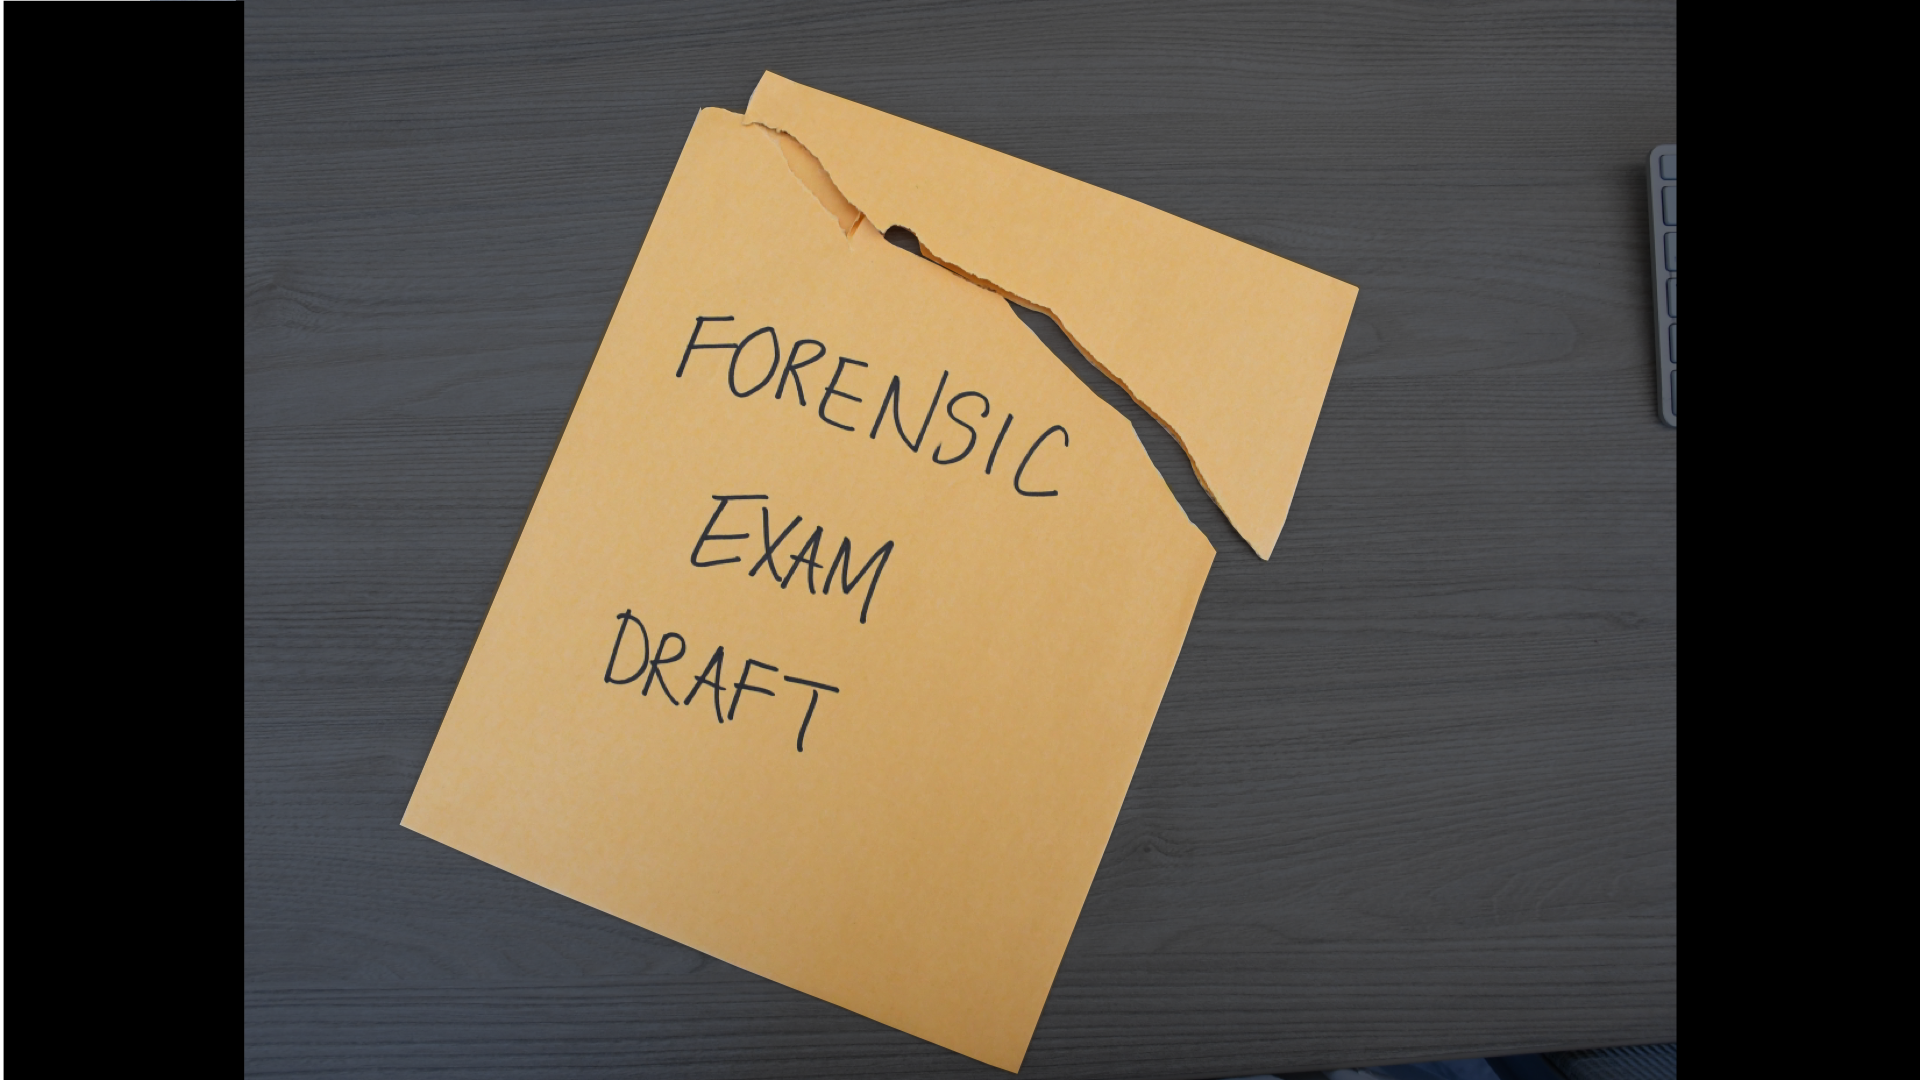 FORENSIC
EXAM
DRAFT